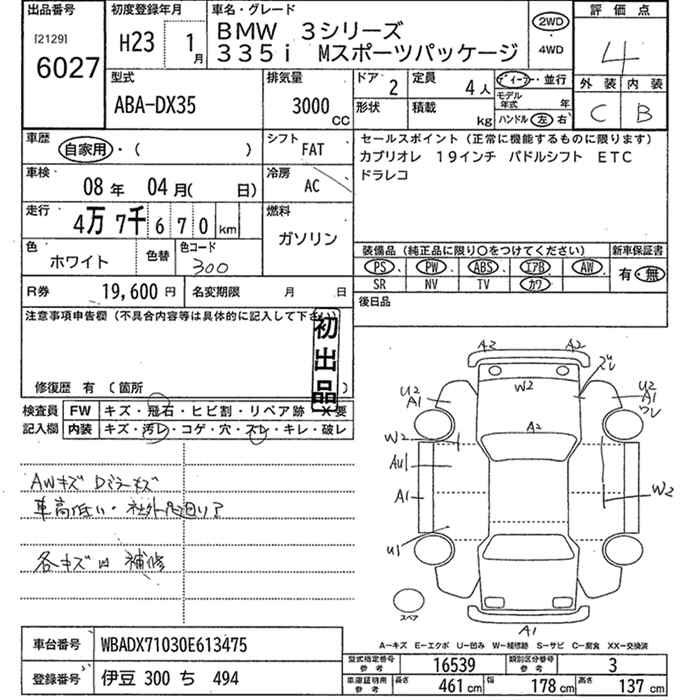 出品番号
[2129]
6027
初度登録年月
H23 1月
車名・グレード
BMW 3シリーズ
335i Mスポーツパッケージ
2WD
4WD
評価点
4
外装 内装
C B
型式
ABA-DX35
排気量
3000 CC
ドア 2
形状
定員 4人
積載 kg
ディーラー・並行
モデル年式 年
ハンドル 左 右
車歴
自家用・( )
シフト
FAT
車検
08年 04月( 日)
冷房
AC
走行
4万7千670km
燃料
ガソリン
色
ホワイト
色替
色コード
300
セールスポイント(正常に機能するものに限ります)
カブリオレ 19インチ パドルシフト ETC
ドラレコ
装備品(純正品に限り○をつけてください) 新車保証書
PS. PW. ABS. エアB AW. 有・無
SR NV TV カワ
R券 19,600円 名変期限 月 日
後日品
注意事項申告欄(不具合内容等は具体的に記入して下さい)
初出品
修復歴 有(箇所 )
検査員記入欄
FW キズ・飛石・ヒビ割・リペア跡・X要
内装 キズ・汚レ・コゲ・穴・スレ・キレ・破レ
AWキズ Dミラーキズ
車高低い・社外足廻り?
各キズ凹 補修
A2 A2
W2
U2
A1
U2
A1
ワレ
A2
W2
AU1
A1
W2
U1
スペア
A1
A−キズ E−エクボ U−凹み W−補修跡 S−サビ C−腐食 XX−交換済
車台番号 WBADX71030E613475
登録番号 伊豆 300 ち 494
型式指定番号参考 16539 類別区分番号参考 3
車庫証明用参考 長さ 461cm 幅 178cm 高さ 137cm